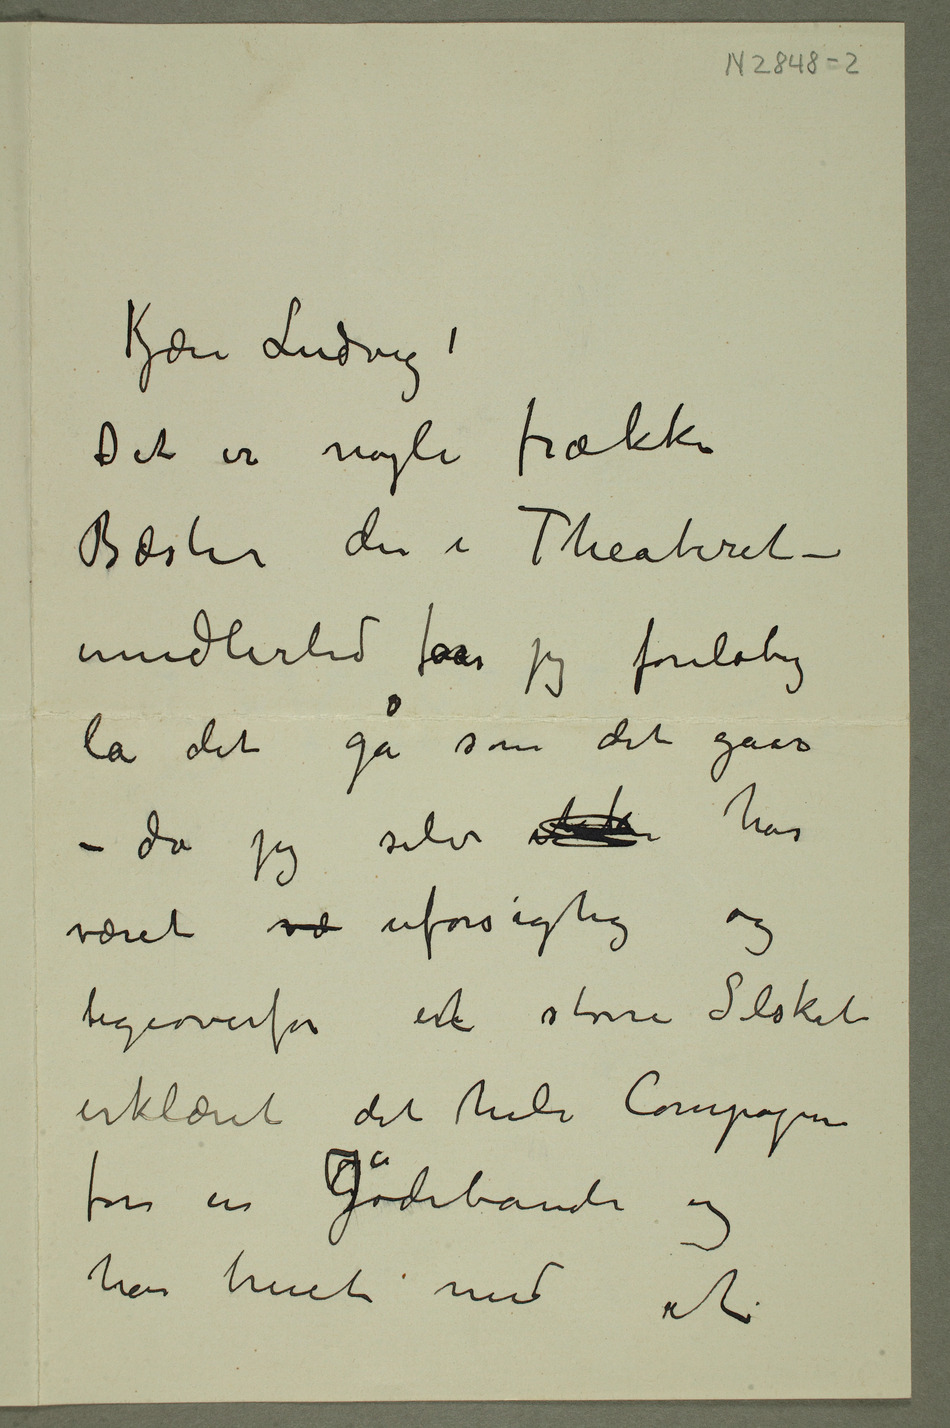 N 2848-2
Kjære Ludvig!
Det er nogle frække
Bæster der i Theateret –
imidlertid faar jeg foreløbig
la det gå som det gaar
– da jeg selv har
været væ uforsigtig og
ligeoverfor et større Selskab
erklæret det hele Compagni
for en Jødebande og
har truet med at